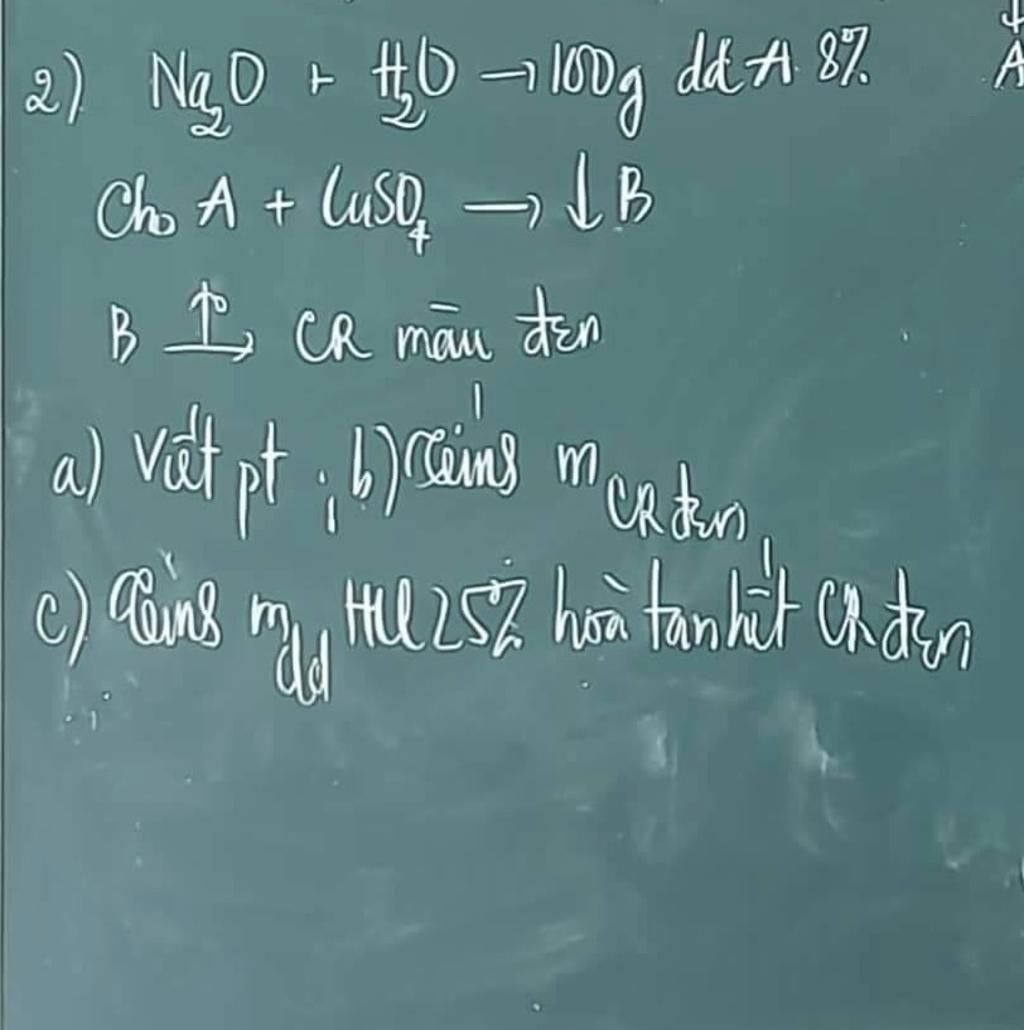 2) Na₂O + H₂O → 100g dd A 8%
Cho A + CuSO₄ → ↓ B
B t° → CR màu đen
a) Viết pt ; b) Tính m CR đen
c) Tính m dd HCl 25% hoà tan hết CR đen
A